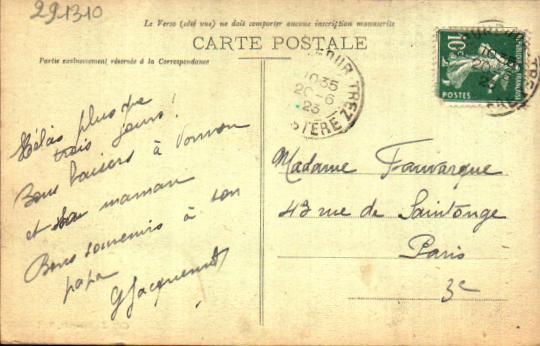 291310
Le Verso (côté vue) ne doit comporter aucune inscription manuscrite
CARTE POSTALE
Partie exclusivement réservée à la Correspondance
TREZ
10 35
20-6
23
FINISTERE
10c
POSTES
Hélas plus que
trois jours!
Bons baisers à
et sa maman
Bons souvenirs à son
papa
GJacquemot
Madame Fauvarque
43 rue de Saintonge
Paris
3e